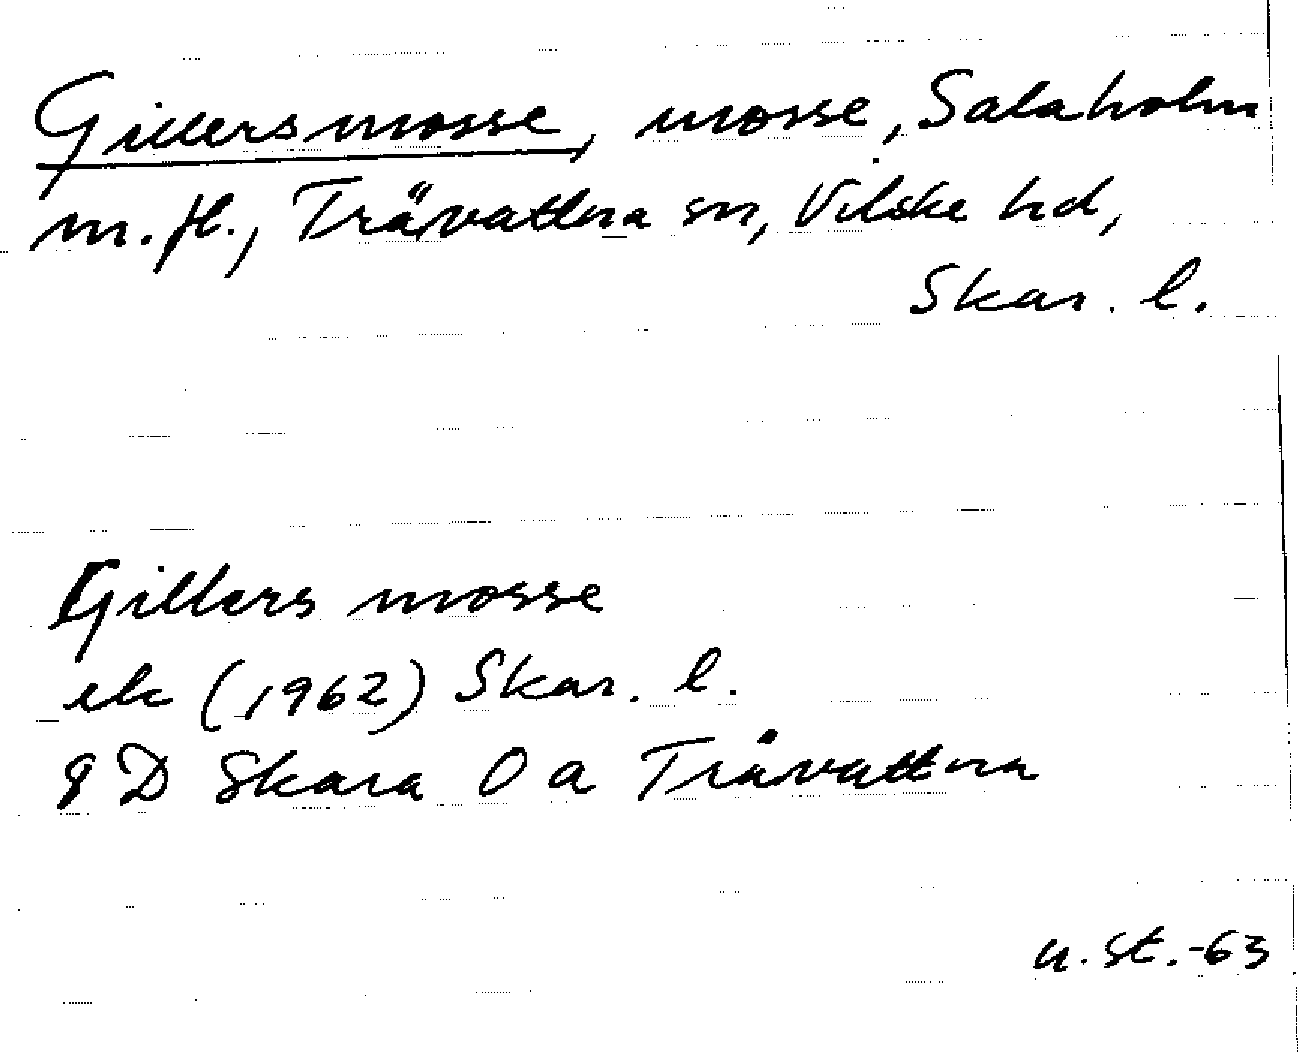 Gillersmosse, mosse, Salaholm
m.fl., Trävattna sn, Vilske hd,
Skar. l.
Gillers mosse
ek (1962) Skar. l.
8 D Skara 0 a Trävattna
u. st. -63